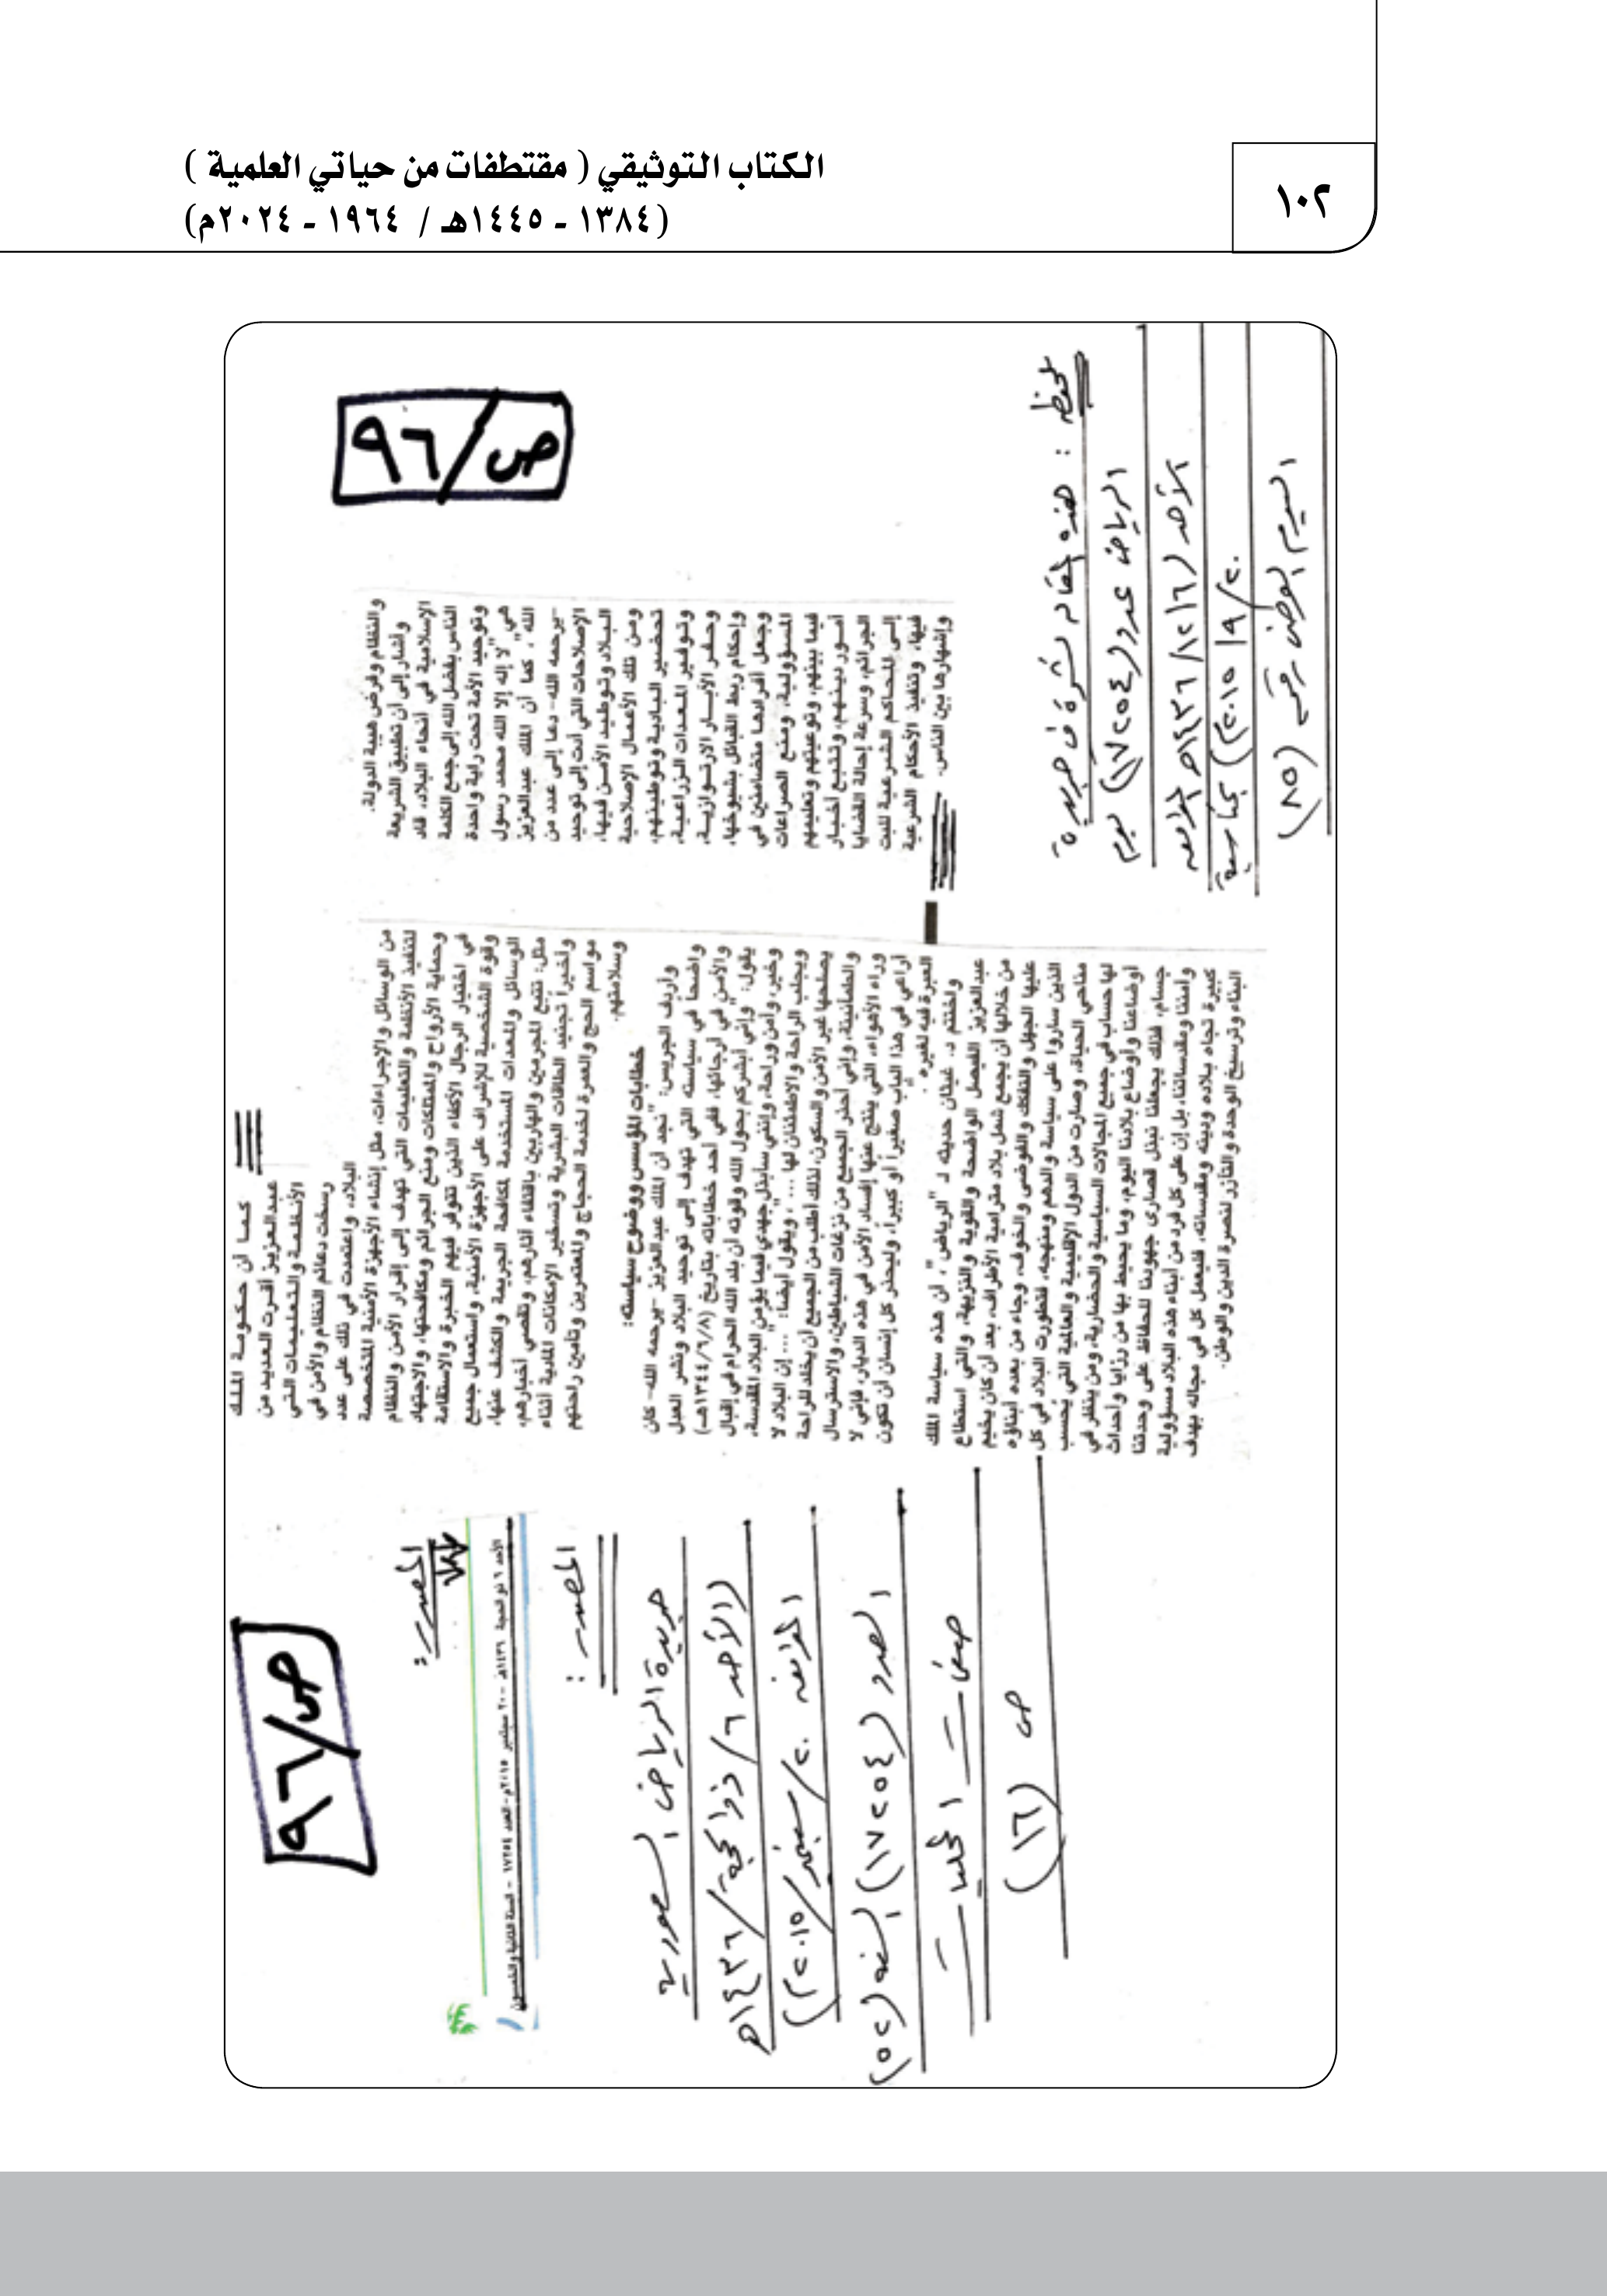 ١٠٢
الكتاب التوثيقي ( مقتطفات من حياتي العلمية )
(١٣٨٤ - ١٤٤٥هـ / ١٩٦٤ - ٢٠٢٤م)
ص/٩٦
والنظام وفرض هيبة الدولة.
وأشار إلى أن تطبيق الشريعة
الإسلامية في أنحاء البلاد، قاد
الناس بفضل الله إلى جمع الكلمة
وتوحيد الأمة تحت راية واحدة
هي "لا إله إلا الله محمد رسول
الله"، كما أن الملك عبدالعزيز
-يرحمه الله- دعا إلى عدد من
الإصلاحات التي أدت إلى توحيد
البلاد وتوطيد الأمن فيها،
ومن تلك الأعمال الإصلاحية
تحضير البادية وتوطينهم،
وتوفير المعدات الزراعية،
وحفر الآبار الارتوازية،
وإحكام ربط القبائل بشيوخها،
وجعل أفرادها متضامنين في
المسؤولية، ومنع الصراعات
فيما بينهم، وتوعيتهم وتعليمهم
أمور دينهم، وتتبع أخبار
الجرائم، وسرعة إحالة القضايا
إلى المحاكم الشرعية للبت
فيها، وتنفيذ الأحكام الشرعية
وإشهارها بين الناس.
ملحوظة : هذه المقالة نشرت في جريدة
الرياض عدد (١٧٢٥٤) يوم
الأحد (١٤٣٦/١٢/٦هـ الموافق
٢٠/٩/٢٠١٥م) بمناسبة
اليوم الوطني رقم (٨٥)
كما أن حكومة الملك
عبدالعزيز أقرت العديد من
الأنظمة والتعليمات التي
رسخت دعائم النظام والأمن في
البلاد، واعتمدت في ذلك على عدد
من الوسائل والإجراءات، مثل إنشاء الأجهزة الأمنية المتخصصة
لتنفيذ الأنظمة والتعليمات التي تهدف إلى إقرار الأمن والنظام
وحماية الأرواح والممتلكات ومنع الجرائم ومكافحتها، والاجتهاد
في اختيار الرجال الأكفاء الذين تتوفر فيهم الخبرة والاستقامة
وقوة الشخصية للإشراف على الأجهزة الأمنية، واستعمال جميع
الوسائل والمعدات المستخدمة لمكافحة الجريمة والكشف عنها،
مثل: تتبع المجرمين والهاربين باقتفاء آثارهم، وتقصي أخبارهم،
وأخيراً تجنيد الطاقات البشرية وتسخير الإمكانات المادية أثناء
مواسم الحج والعمرة لخدمة الحجاج والمعتمرين وتأمين راحتهم
وسلامتهم.
خطابات المؤسس ووضوح سياسته:
وأردف الجريس: "نجد أن الملك عبدالعزيز -يرحمه الله- كان
واضحاً في سياسته التي تهدف إلى توحيد البلاد ونشر العدل
والأمن في أرجائها، ففي أحد خطاباته بتاريخ (١٣٤٤/٦/٨هـ)
يقول: "وإني أبشركم بحول الله وقوته أن بلد الله الحرام في إقبال
وخير، وأمن وراحة، وإنني سأبذل جهدي فيما يؤمن البلاد المقدسة،
ويجلب الراحة والاطمئنان لها ..."، ويقول أيضاً: "... إن البلاد لا
يصلحها غير الأمن والسكون، لذلك أطلب من الجميع أن يخلد للراحة
والطمأنينة، وإني أحذر الجميع من نزغات الشياطين، والاسترسال
وراء الأهواء، التي ينتج عنها إفساد الأمن في هذه الديار، فإني لا
أراعي في هذا الباب صغيراً أو كبيراً، وليحذر كل إنسان أن تكون
العبرة فيه لغيره".
واختتم د. غيثان حديثه لـ "الرياض"، أن هذه سياسة الملك
عبدالعزيز الفيصل الواضحة والقوية والنزيهة، والتي استطاع
من خلالها أن يجمع شمل بلاد مترامية الأطراف، بعد أن كان يخيم
عليها الجهل والتفكك والفوضى والخوف، وجاء من بعده أبناؤه
الذين ساروا على سياسة والدهم ومنهجه، فتطورت البلاد في كل
مناحي الحياة، وصارت من الدول الإقليمية والعالمية التي يُحسب
لها حساب في جميع المجالات السياسية والحضارية، ومن ينظر في
أوضاعنا وأوضاع بلادنا اليوم، وما يحيط بها من رزايا وأحداث
جسام، فذلك يجعلنا نبذل قصارى جهودنا للحفاظ على وحدتنا
وأمننا ومقدساتنا، بل إن على كل فرد من أبناء هذه البلاد مسؤولية
كبيرة تجاه بلاده ودينه ومقدساته، فليعمل كل في مجاله بهدف
البناء وترسيخ الوحدة والتآزر لنصرة الدين والوطن.
ص/٩٦
المصدر:
الأحد ٦ ذو الحجة ١٤٣٦هـ - ٢٠ سبتمبر ٢٠١٥م - العدد ١٧٢٥٤ - السنة الثانية والخمسون
المصدر :
جريدة الرياض السعودية
(الأحد ٦/ذو الحجة/١٤٣٦هـ
الموافق ٢٠/سبتمبر/٢٠١٥م)
العدد (١٧٢٥٤) السنة (٥٢)
صفحة المحليات
ص (١٦)